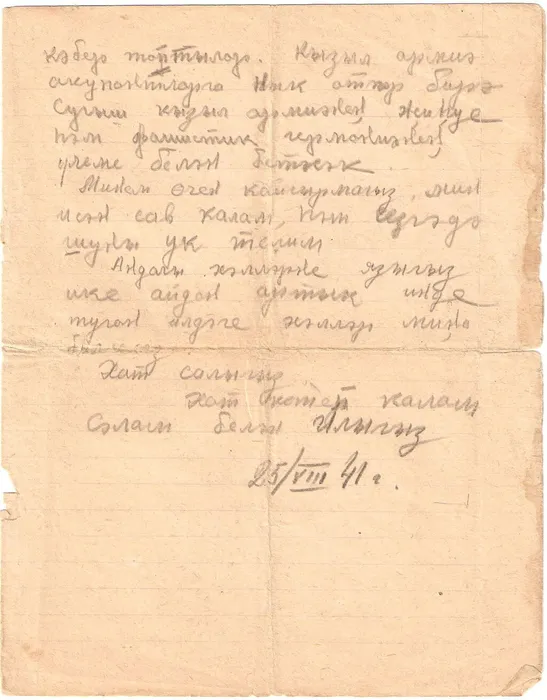 кәбер топтылар. Кызыл армиә
акупонтларга нык отпор бирә
Сугыш кызыл армиянең җиңүе
һәм фашистик германиянең
үлеме белән бетәчәк.
Минем өчен кайгырмагыз, мин
исән сав калам, һәм сезгәдә
шуны ук телим
Андагы хәлләрне языгыз
ике айдан артык инде
туган илдәге хәлләр миңа
Хат салыгыз
Хат көтеп калам
Сәлам белән Улыгыз
25/VIII 41 г.